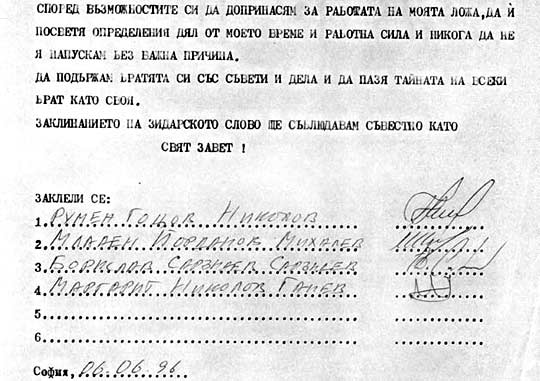 СПОРЕД ВЪЗМОЖНОСТИТЕ СИ ДА ДОПРИНАСЯМ ЗА РАБОТАТА НА МОЯТА ЛОЖА,ДА Й
ПОСВЕТЯ ОПРЕДЕЛЕНИЯ ДЯЛ ОТ МОЕТО ВРЕМЕ И РАБОТНА СИЛА И НИКОГА ДА НЕ
Я НАПУСКАМ БЕЗ ВАЖНА ПРИЧИНА.
ДА ПОДЪРЖАМ БРАТЯТА СИ СЪС СЪВЕТИ И ДЕЛА И ДА ПАЗЯ ТАЙНАТА НА ВСЕКИ
БРАТ КАТО СВОЯ.
ЗАКЛИНАНИЕТО НА ЗИДАРСКОТО СЛОВО ЩЕ СЪБЛЮДАВАМ СЪВЕСТНО КАТО
СВЯТ ЗАВЕТ !
ЗАКЛЕЛИ СЕ:
1. РУМЕН ГОЦОВ НИКОЛОВ
2. МЛАДЕН ЙОРДАНОВ МИХАЛЕВ
3. БОРИСЛАВ САРЗНЕВ САРЗНЕВ
4. МАРГАРИТ НИКОЛОВ ГАНЕВ
5.
6.
София, 06.06.96.